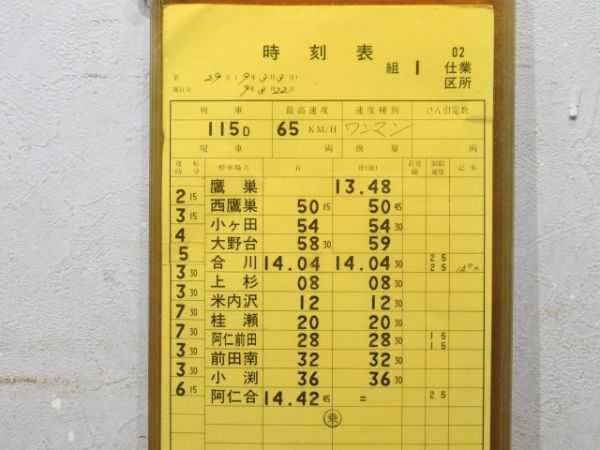 時刻表
組 1 02 仕業 区所
第 29号(9年3月3日)
施行日 9年3月22日
列車 最高速度 速度種別 けん引定数
115D 65 KM/H ワンマン
現車 両 換算 両
運転時分 停車場名 着 発(通) 着発線 制限速度 記事
鷹巣 13.48
2 15
西鷹巣 50 15 50 45
3 15
小ヶ田 54 54 30
4
大野台 58 30 59
5
合川 14.04 14.04 30 25 25
3 30
上杉 08 08 30
3 30
米内沢 12 12 30
7 30
桂瀬 20 20 30
7 30
阿仁前田 28 28 30 15 15
3 30
前田南 32 32 30
3 30
小渕 36 36 30
6 15
阿仁合 14.42 45 = 25
乗